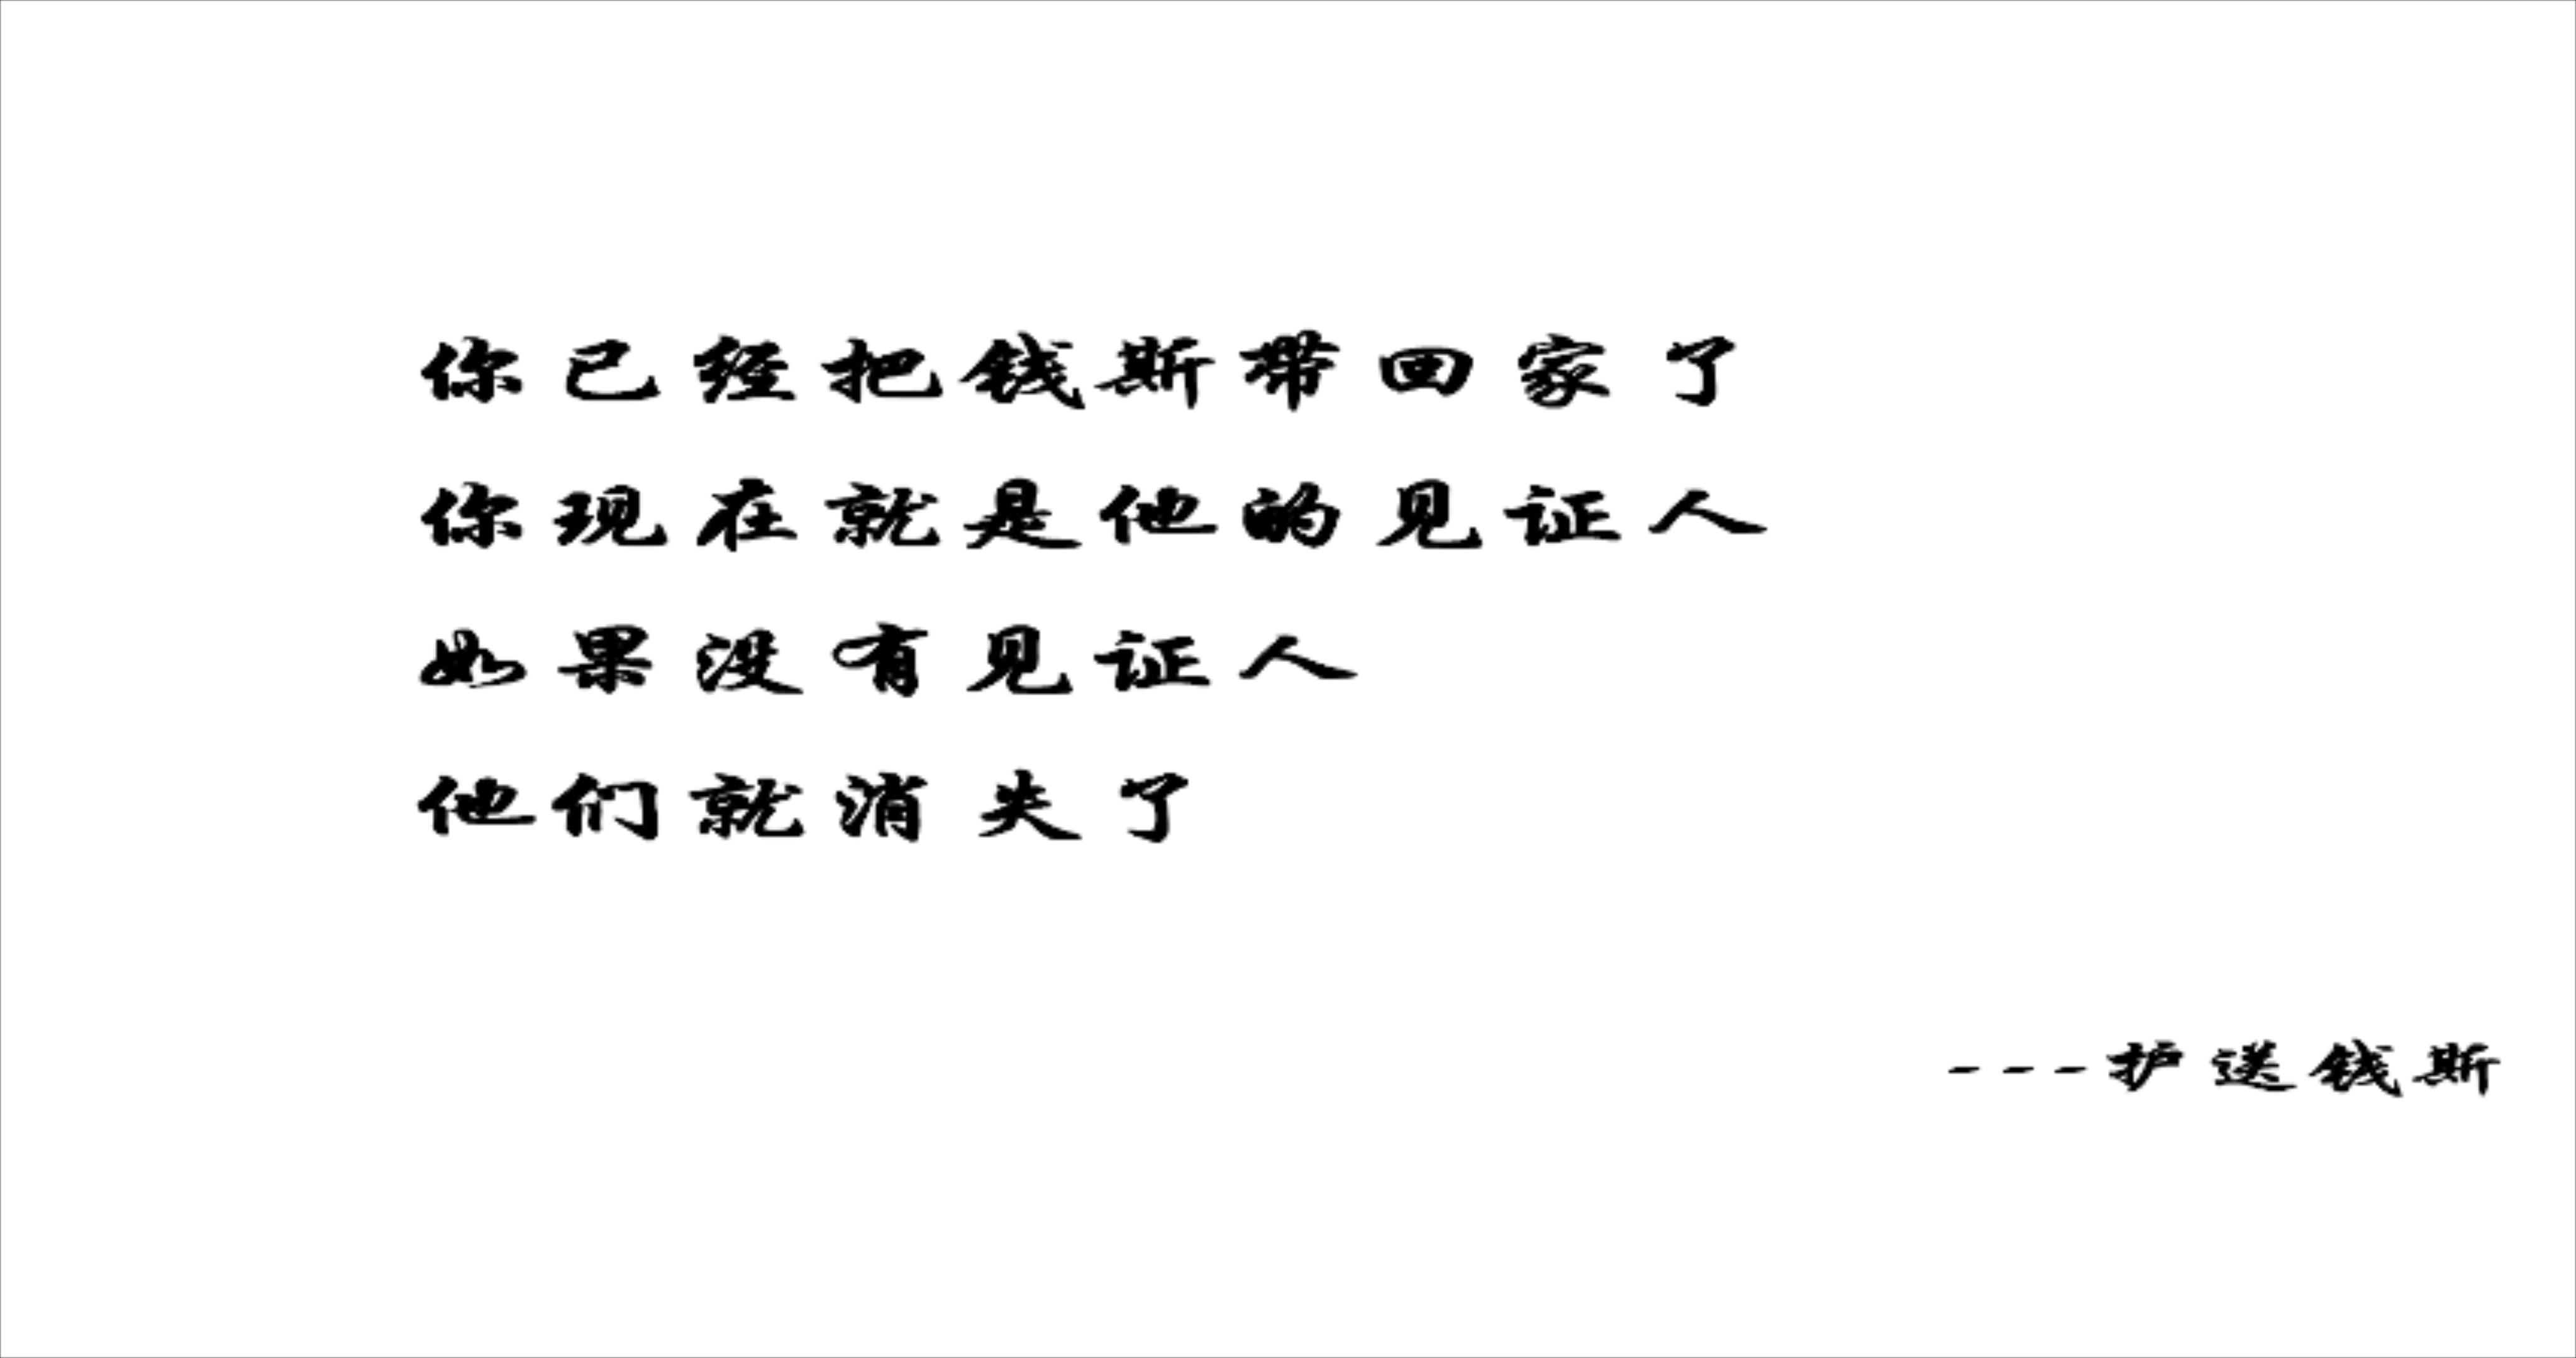 你已经把钱斯带回家了
你现在就是他的见证人
如果没有见证人
他们就消失了
---护送钱斯